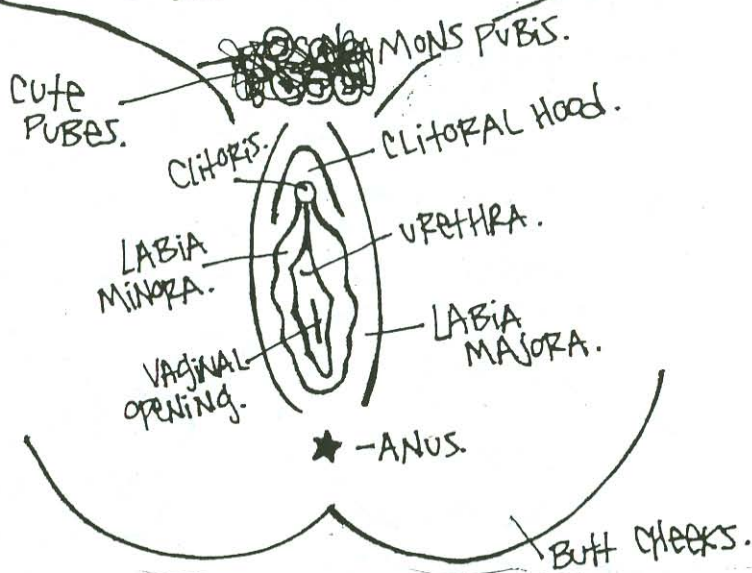 MONS PUBIS.
CUTE
PUBES.
CLITORAL HOOD.
CLITORIS.
URETHRA.
LABIA
MINORA.
LABIA
MAJORA.
VAGINAL
OPENING.
-ANUS.
BUTT CHEEKS.